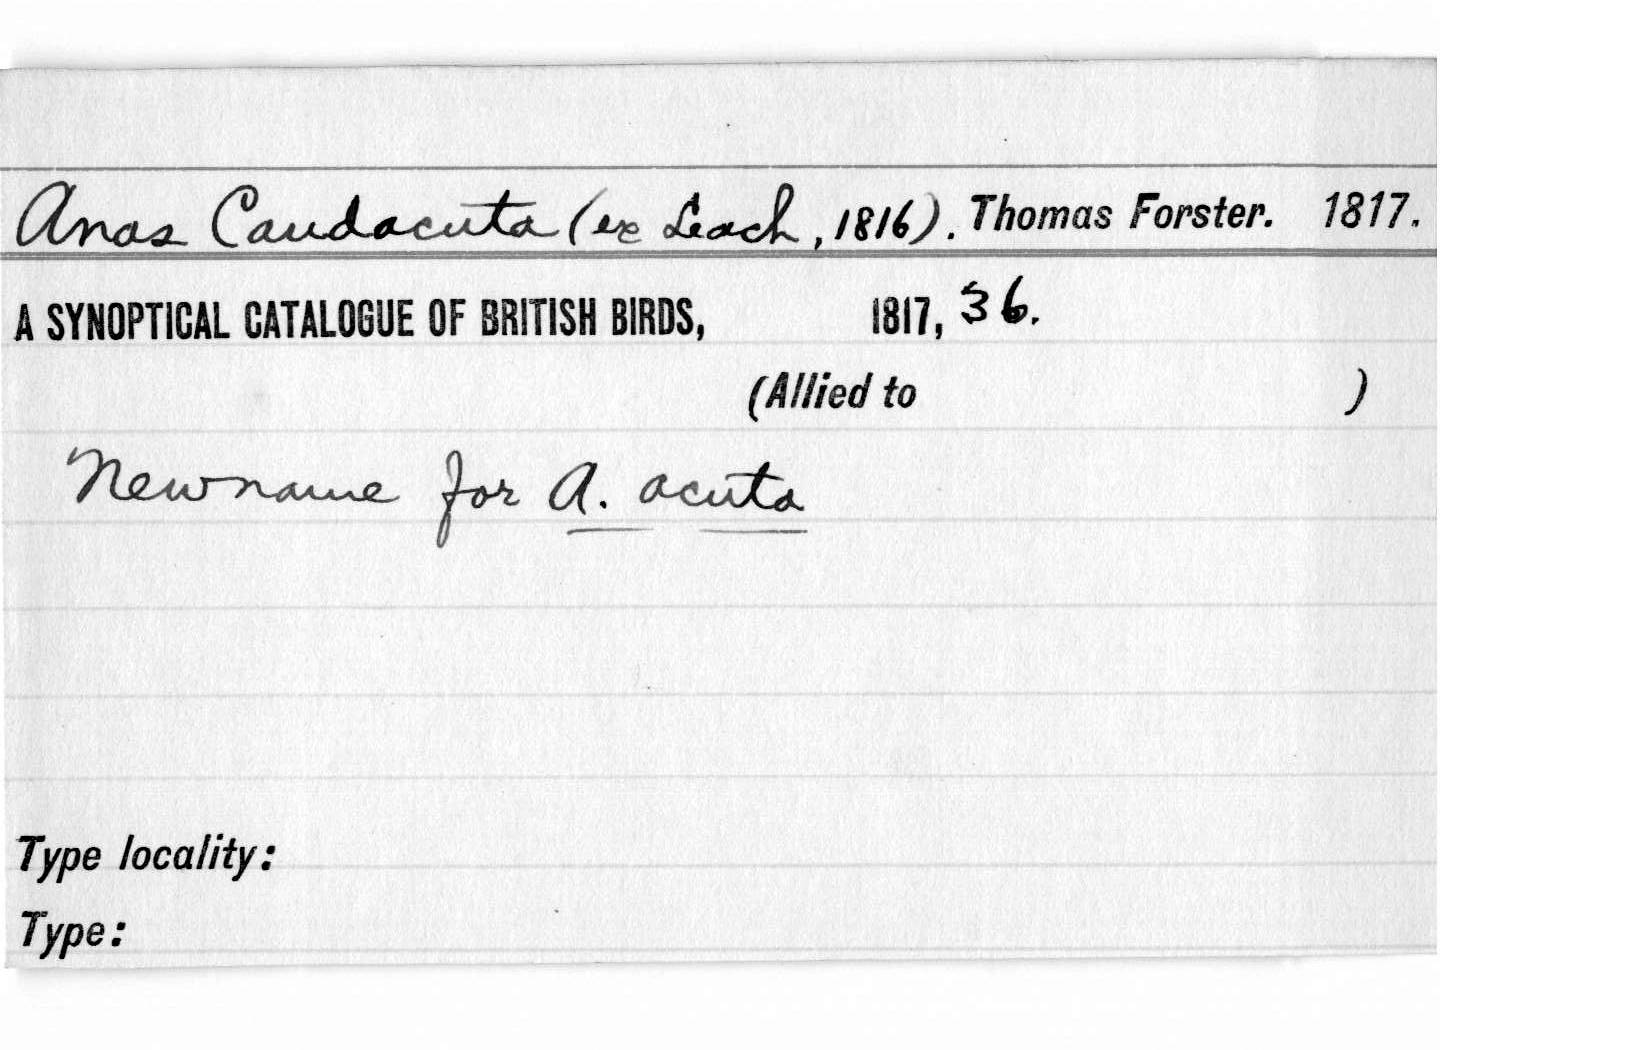 Anas Caudacuta (ex Leach, 1816). Thomas Forster. 1817.
A SYNOPTICAL CATALOGUE OF BRITISH BIRDS, 1817, 36.
(Allied to )
New name for A. acuta
Type locality:
Type: